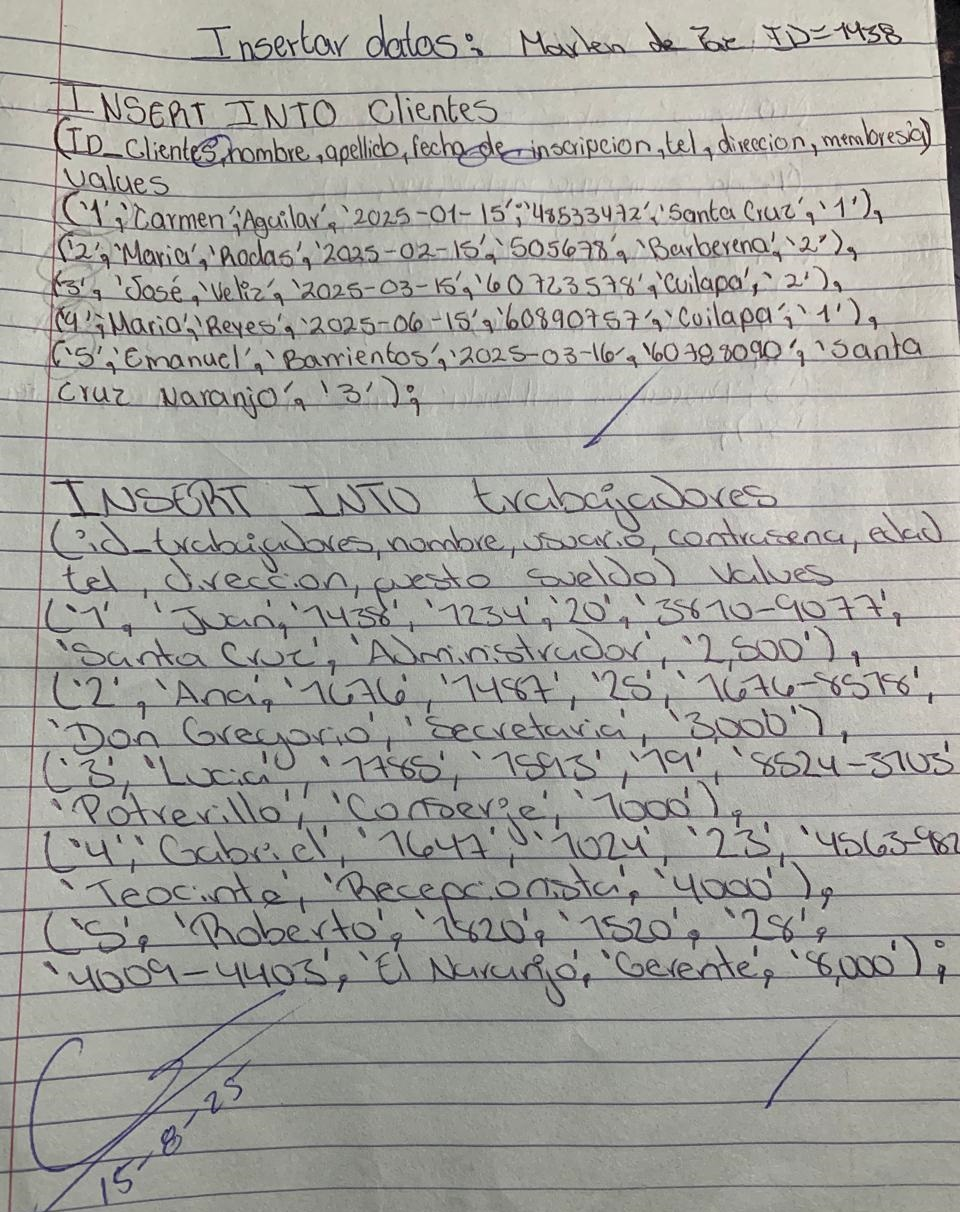 Insertar datos: Marlen de Paz ID=1438
INSERT INTO Clientes
(ID_Clientes, nombre, apellido, fecha de inscripcion, tel, direccion, membresia)
values
('1','Carmen','Aguilar','2025-01-15','48533472','Santa Cruz','1'),
('2','Maria','Rodas','2025-02-15','505678','Barberena','2'),
('3','José','Veliz','2025-03-15','60723578','Cuilapa','2'),
('4','Mario','Reyes','2025-06-15','60890757','Cuilapa','1'),
('5','Emanuel','Barrientos','2025-03-16','60788090','Santa
Cruz Naranjo','3');
INSERT INTO trabajadores
(id_trabajadores, nombre, usuario, contrasena, edad
tel, direccion, puesto sueldo) values
('1', 'Juan', '1438', '1234', '20', '3870-9077',
'Santa Cruz', 'Administrador', '2,500'),
('2', 'Ana', '1676', '1487', '25', '1676-8578',
'Don Gregorio', 'Secretaria', '3,000'),
('3', 'Lucia', '1785', '1593', '19', '8524-3703'
'Potrerillo', 'Conserje', '1000'),
('4', 'Gabriel', '1647', '1024', '23', '4563-982
'Teocinte', 'Recepcionista', '4000'),
('5', 'Roberto', '1820', '1520', '28',
'4009-4403', 'El Naranjo', 'Gerente', '8,000');
15,8,25